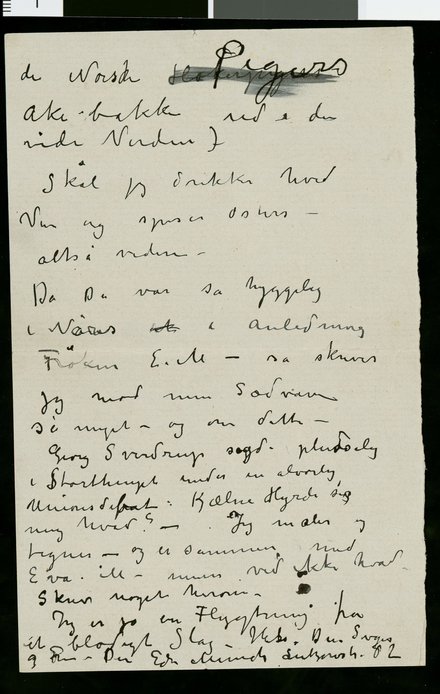 de Norske Pigers
Ake-bakke ud i den
vide Verden)
Skål jeg drikker hvid
Vin og spiser Østers –
altså videre –
Da Du var så hyggelig
i Næres i Anledning
Frøken E.M – så skriver
jeg mod min Sædvane
så meget – og om dette –
Georg Sverdrup sagde pludselig
i Storthinget under en alvorlig
Unionsdebat: Kjælne Hyrde sig
mig hvad? – Jeg maler og
tegner – og er sammen med
Eva. M – men ved ikke hvad
Skriv noget herom –
Jeg er jo en Flygtning fra
et blodigt Slag – Din
Din Edv Munch Lützowstr. 82